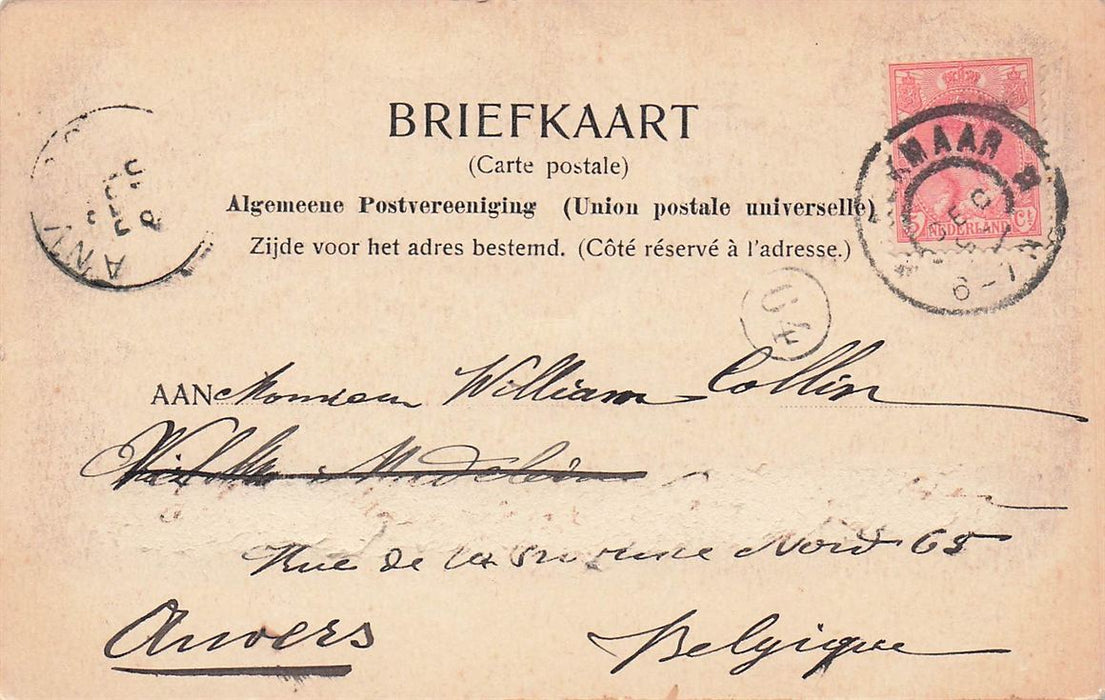 BRIEFKAART
(Carte postale)
Algemeene Postvereeniging (Union postale universelle)
Zijde voor het adres bestemd. (Côté réservé à l'adresse.)
5 Ct
NEDERLAND
ALKMAAR
DEC
6-7
ANV
U4
AAN Monsieur William Collin
Rue de la Province Nord 65
Anvers Belgique